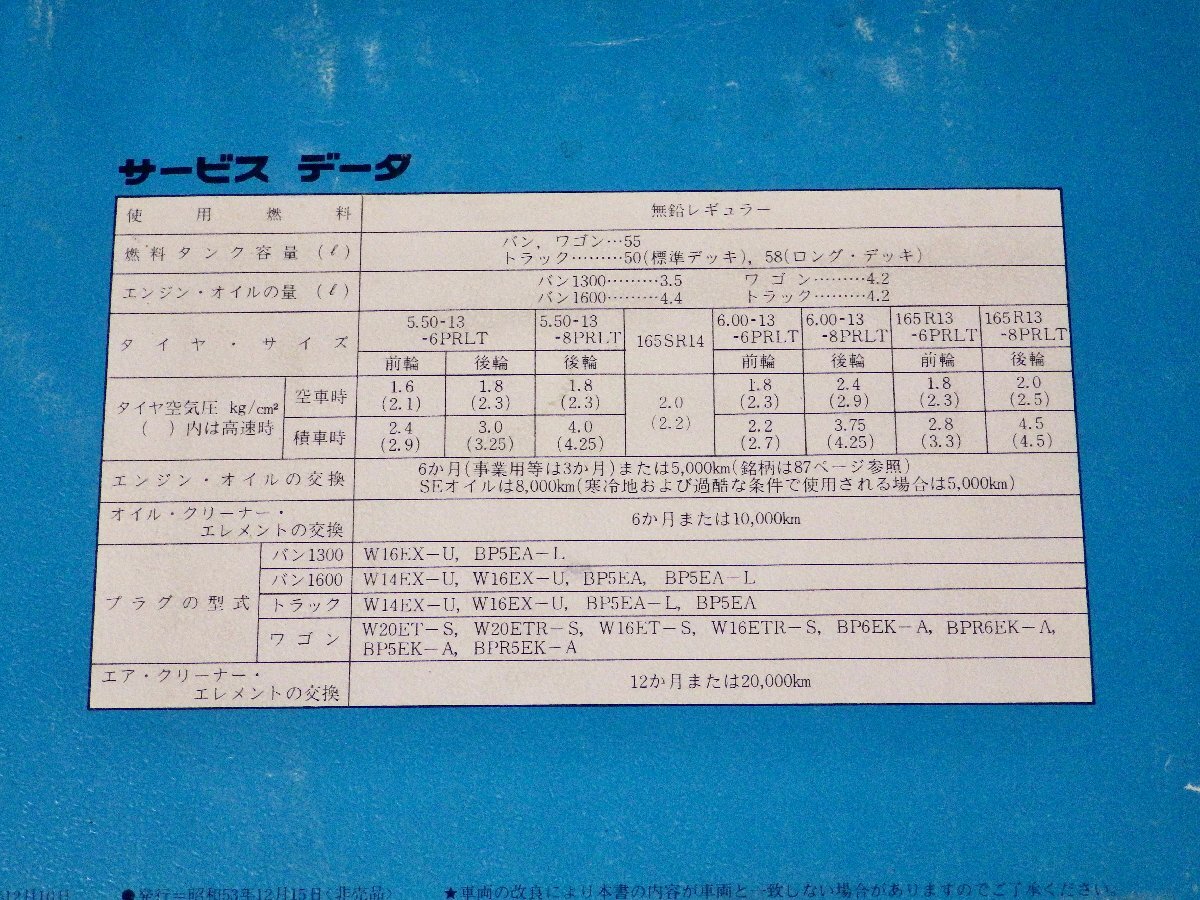 サービス データ
使用燃料 無鉛レギュラー
燃料タンク容量 (ℓ) バン, ワゴン…55
トラック………50(標準デッキ), 58(ロング・デッキ)
エンジン・オイルの量 (ℓ) バン1300………3.5 ワゴン………4.2
バン1600………4.4 トラック………4.2
タイヤ・サイズ 5.50-13 5.50-13 165SR14 6.00-13 6.00-13 165R13 165R13
-6PRLT -8PRLT -6PRLT -8PRLT -6PRLT -8PRLT
前輪 後輪 後輪 前輪 後輪 前輪 後輪
タイヤ空気圧 kg/cm²
( )内は高速時
空車時 1.6 1.8 1.8 2.0 1.8 2.4 1.8 2.0
(2.1) (2.3) (2.3) (2.2) (2.3) (2.9) (2.3) (2.5)
積車時 2.4 3.0 4.0 2.2 3.75 2.8 4.5
(2.9) (3.25) (4.25) (2.7) (4.25) (3.3) (4.5)
エンジン・オイルの交換 6か月(事業用等は3か月)または5,000km(銘柄は87ページ参照)
SEオイルは8,000km(寒冷地および過酷な条件で使用される場合は5,000km)
オイル・クリーナー・
エレメントの交換 6か月または10,000km
プラグの型式
バン1300 W16EX-U, BP5EA-L
バン1600 W14EX-U, W16EX-U, BP5EA, BP5EA-L
トラック W14EX-U, W16EX-U, BP5EA-L, BP5EA
ワゴン W20ET-S, W20ETR-S, W16ET-S, W16ETR-S, BP6EK-A, BPR6EK-A,
BP5EK-A, BPR5EK-A
エア・クリーナー・
エレメントの交換 12か月または20,000km
12月10日 ●発行=昭和53年12月15日〈非売品〉 ★車両の改良により本書の内容が車両と一致しない場合がありますのでご了承ください。